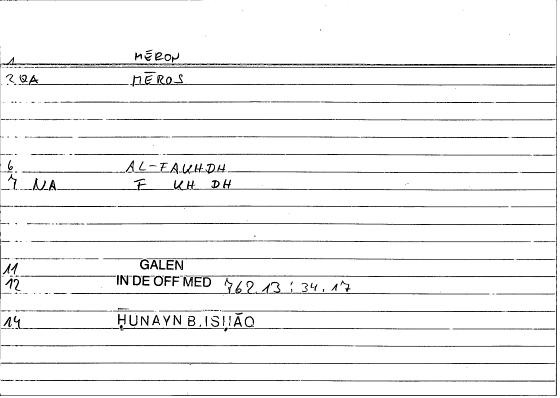 1 MĒRON
2 QA MĒROS
6 AL-FAKHDH
7 NA F KH DH
11 GALEN
12 IN DE OFF MED 762.13 : 34.17
14 ḤUNAYN B. ISḤĀQ